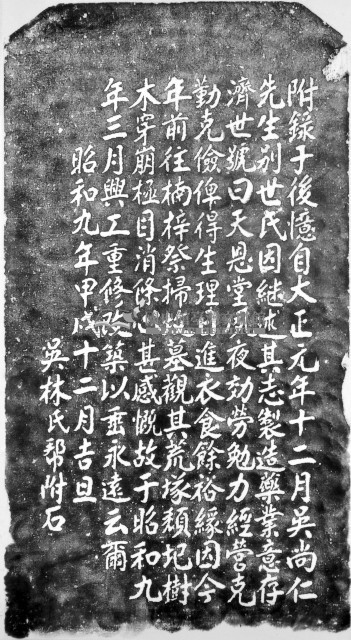 附錄于後憶自大正元年十二月吳尚仁
先生別世氏因繼述其志製造藥業意存
濟世號曰天恩堂夙夜効勞勉力經營克
勤克儉俾得生理日進衣食餘裕緣因今
年前往楠梓祭掃故墓觀其荒塚頹圯樹
木穿崩極目消條心甚感慨故于昭和九
年三月興工重修改築以垂永遠云爾
昭和九年甲戌十二月吉旦
吳林氏帮附石